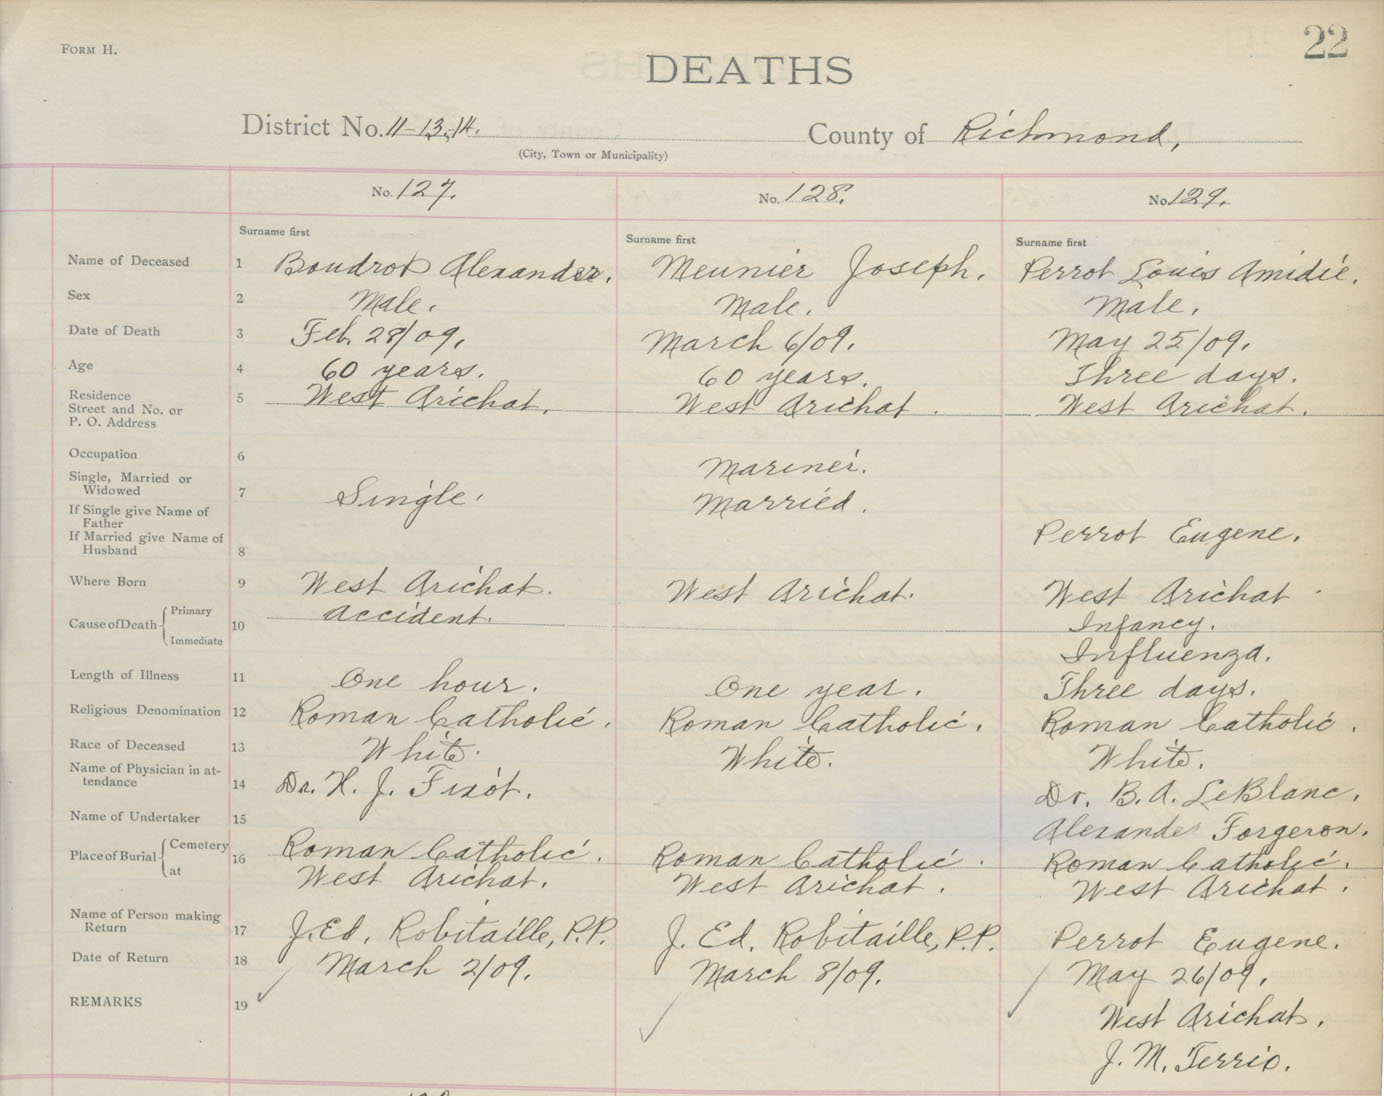 FORM H.
22
DEATHS
District No. 11-13,14.
County of Richmond,
(City, Town or Municipality)
No. 127.
No. 128.
No. 129.
Surname first
Surname first
Surname first
Name of Deceased 1 Boudrot Alexander. Meunier Joseph. Perrot Louis Amidie.
Sex 2 Male. Male. Male.
Date of Death 3 Feb. 28/09. March 6/09. May 25/09.
Age 4 60 years. 60 years. Three days.
Residence
Street and No. or
P. O. Address 5 West Arichat. West Arichat. West Arichat.
Occupation 6 Mariner.
Single, Married or
Widowed 7 Single. Married.
If Single give Name of
Father
If Married give Name of
Husband 8 Perrot Eugene.
Where Born 9 West Arichat. West Arichat. West Arichat.
Cause of Death 10
Primary Accident. Infancy.
Immediate Influenza.
Length of Illness 11 One hour. One year. Three days.
Religious Denomination 12 Roman Catholic. Roman Catholic. Roman Catholic.
Race of Deceased 13 White. White. White.
Name of Physician in at-
tendance 14 Dr. H. J. Fixot. Dr. B. A. LeBlanc.
Name of Undertaker 15 Alexander Forgeron.
Place of Burial 16
Cemetery Roman Catholic. Roman Catholic. Roman Catholic.
at West Arichat. West Arichat. West Arichat.
Name of Person making
Return 17 J. Ed. Robitaille, P.P. J. Ed. Robitaille, P.P. Perrot Eugene.
Date of Return 18 March 2/09. March 8/09. May 26/09.
REMARKS 19 West Arichat.
J. M. Terrio.